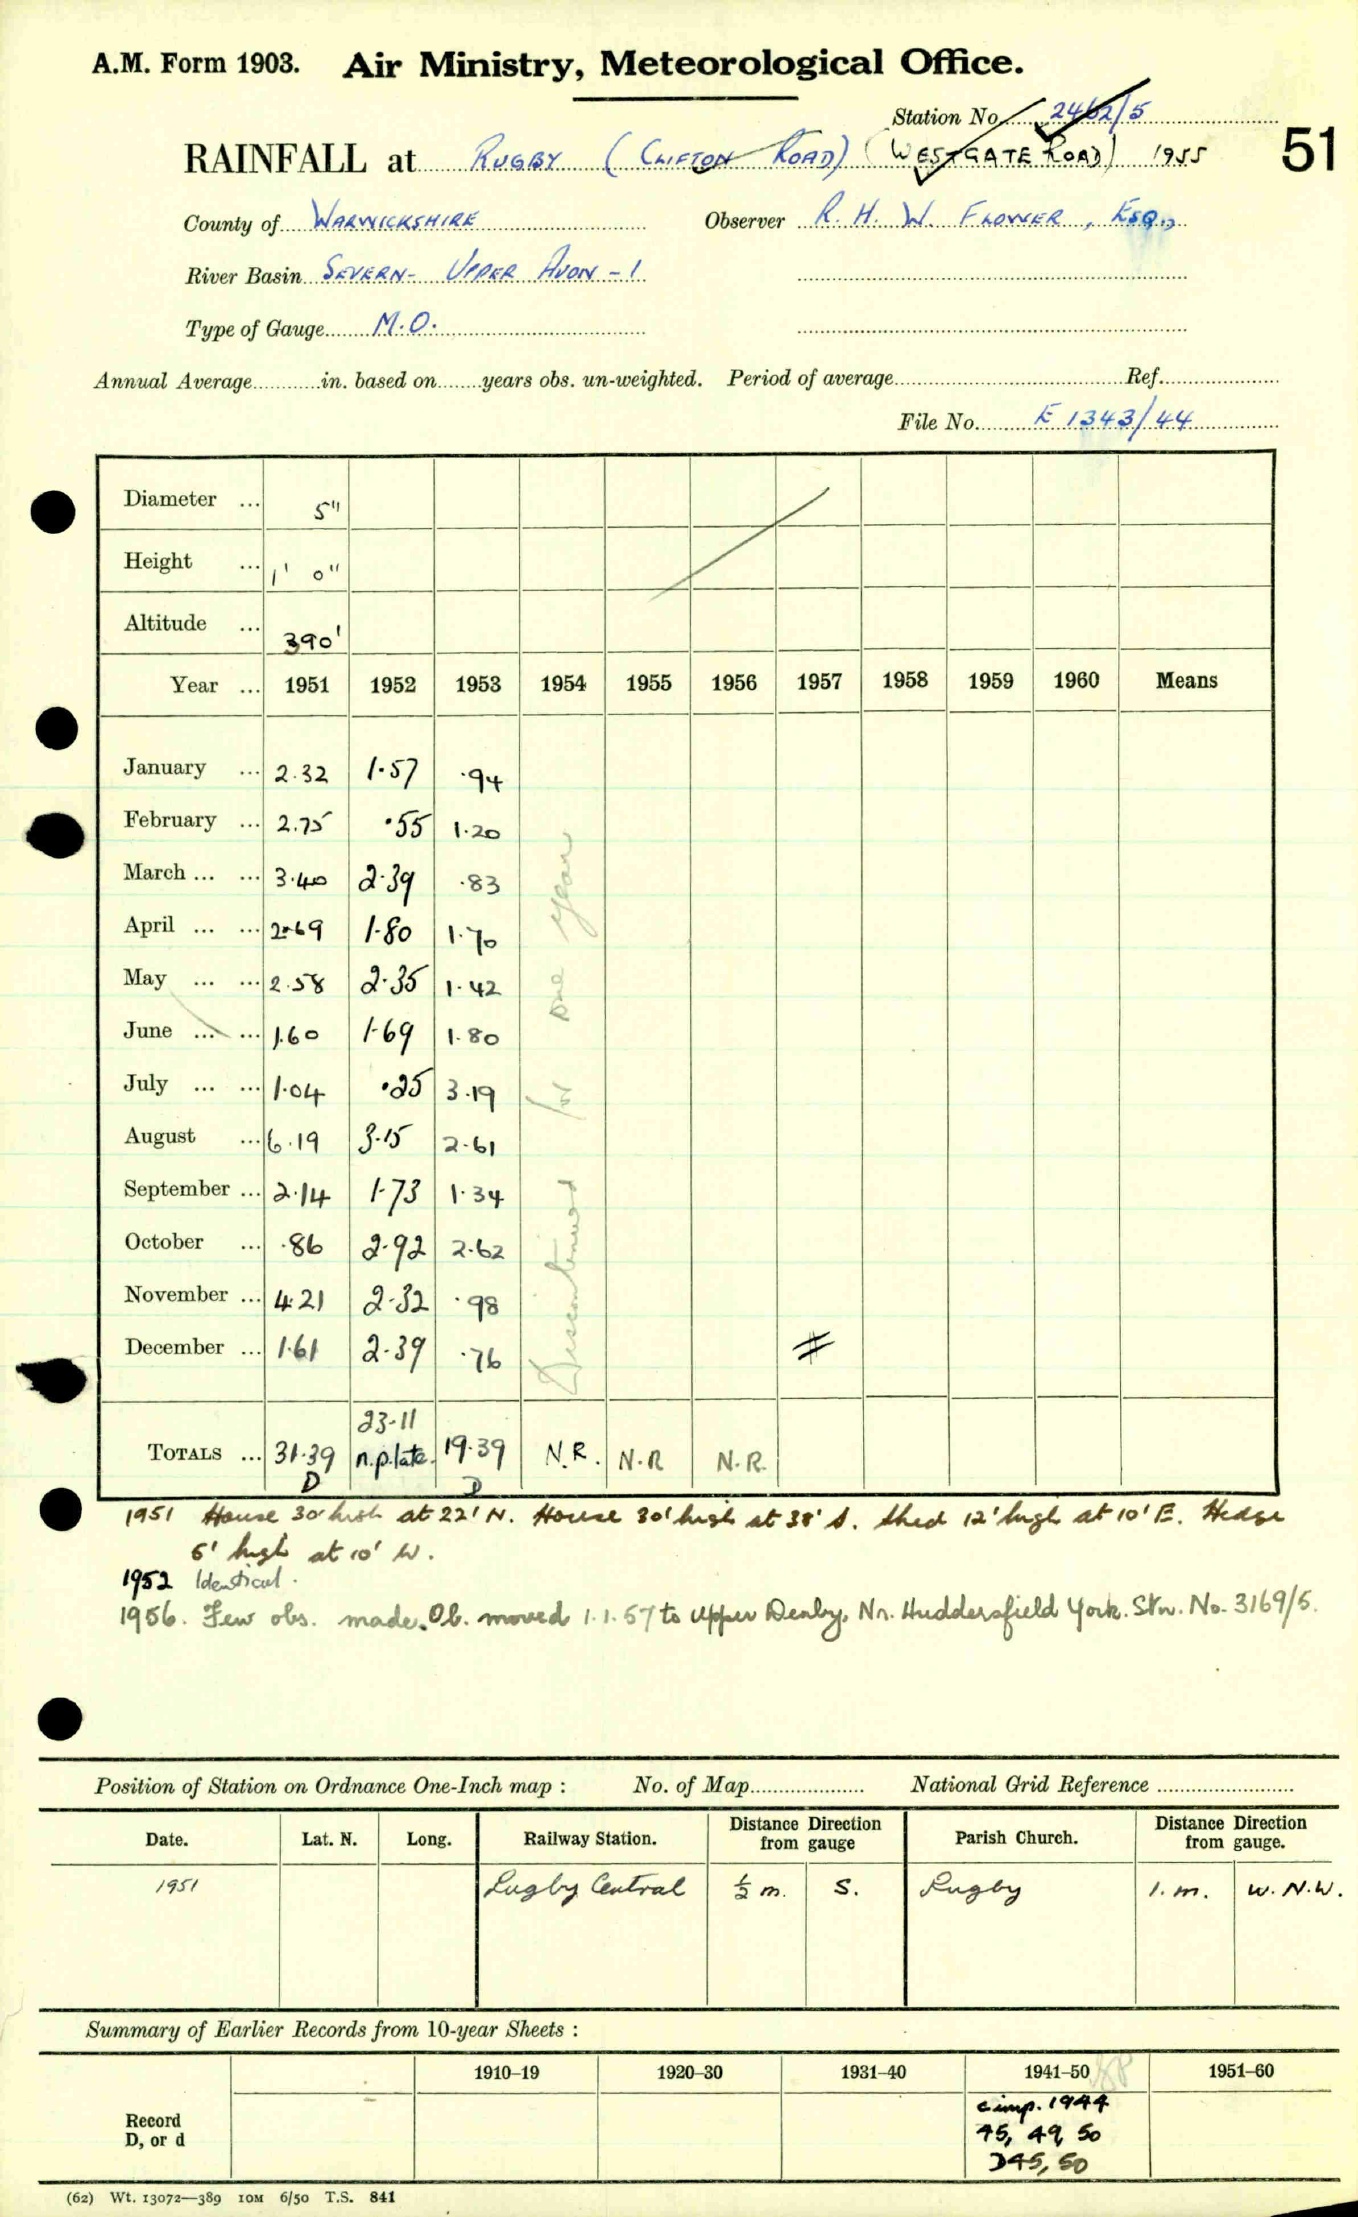 A.M. Form 1903. Air Ministry, Meteorological Office.
Station No. 2462/5
RAINFALL at RUGBY (CLIFTON ROAD) (WESTGATE ROAD) 1955 51
County of WARWICKSHIRE Observer R. H. W. FLOWER, ESQ.,
River Basin SEVERN - UPPER AVON - 1
Type of Gauge M.O.
Annual Average in. based on years obs. un-weighted. Period of average Ref.
File No. E 1343/44
Diameter ... 5"
Height ... 1' 0"
Altitude ... 390'
Year ... 1951 1952 1953 1954 1955 1956 1957 1958 1959 1960 Means
January ... 2.32 1.57 .94
February ... 2.75 .55 1.20
March ... ... 3.40 2.39 .83
April ... ... 2.69 1.80 1.70
May ... ... 2.58 2.35 1.42
June ... ... 1.60 1.69 1.80
July ... ... 1.04 .25 3.19
August ... 6.19 3.15 2.61
September ... 2.14 1.73 1.34
October ... .86 2.92 2.62
November ... 4.21 2.32 .98
December ... 1.61 2.39 .76
Discontinued for one year
23.11
TOTALS ... 31.39 n.p.late. 19.39 N.R. N.R N.R.
D D
1951 House 30' high at 22' N. House 30' high at 38' S. Shed 12' high at 10' E. Hedge
6' high at 10' W.
1952 Identical.
1956. Few obs. made. Ob. moved 1.1.57 to Upper Denby, Nr. Huddersfield York. Stn. No. 3169/5.
Position of Station on Ordnance One-Inch map : No. of Map National Grid Reference
Date. Lat. N. Long. Railway Station. Distance Direction from gauge Parish Church. Distance Direction from gauge.
1951 Rugby Central ½ m. S. Rugby 1. m. W.N.W.
Summary of Earlier Records from 10-year Sheets :
1910–19 1920–30 1931–40 1941–50 1951–60
Record
D, or d
c imp. 1944
45, 49, 50
D45, 50
(62) Wt. 13072—389 10M 6/50 T.S. 841